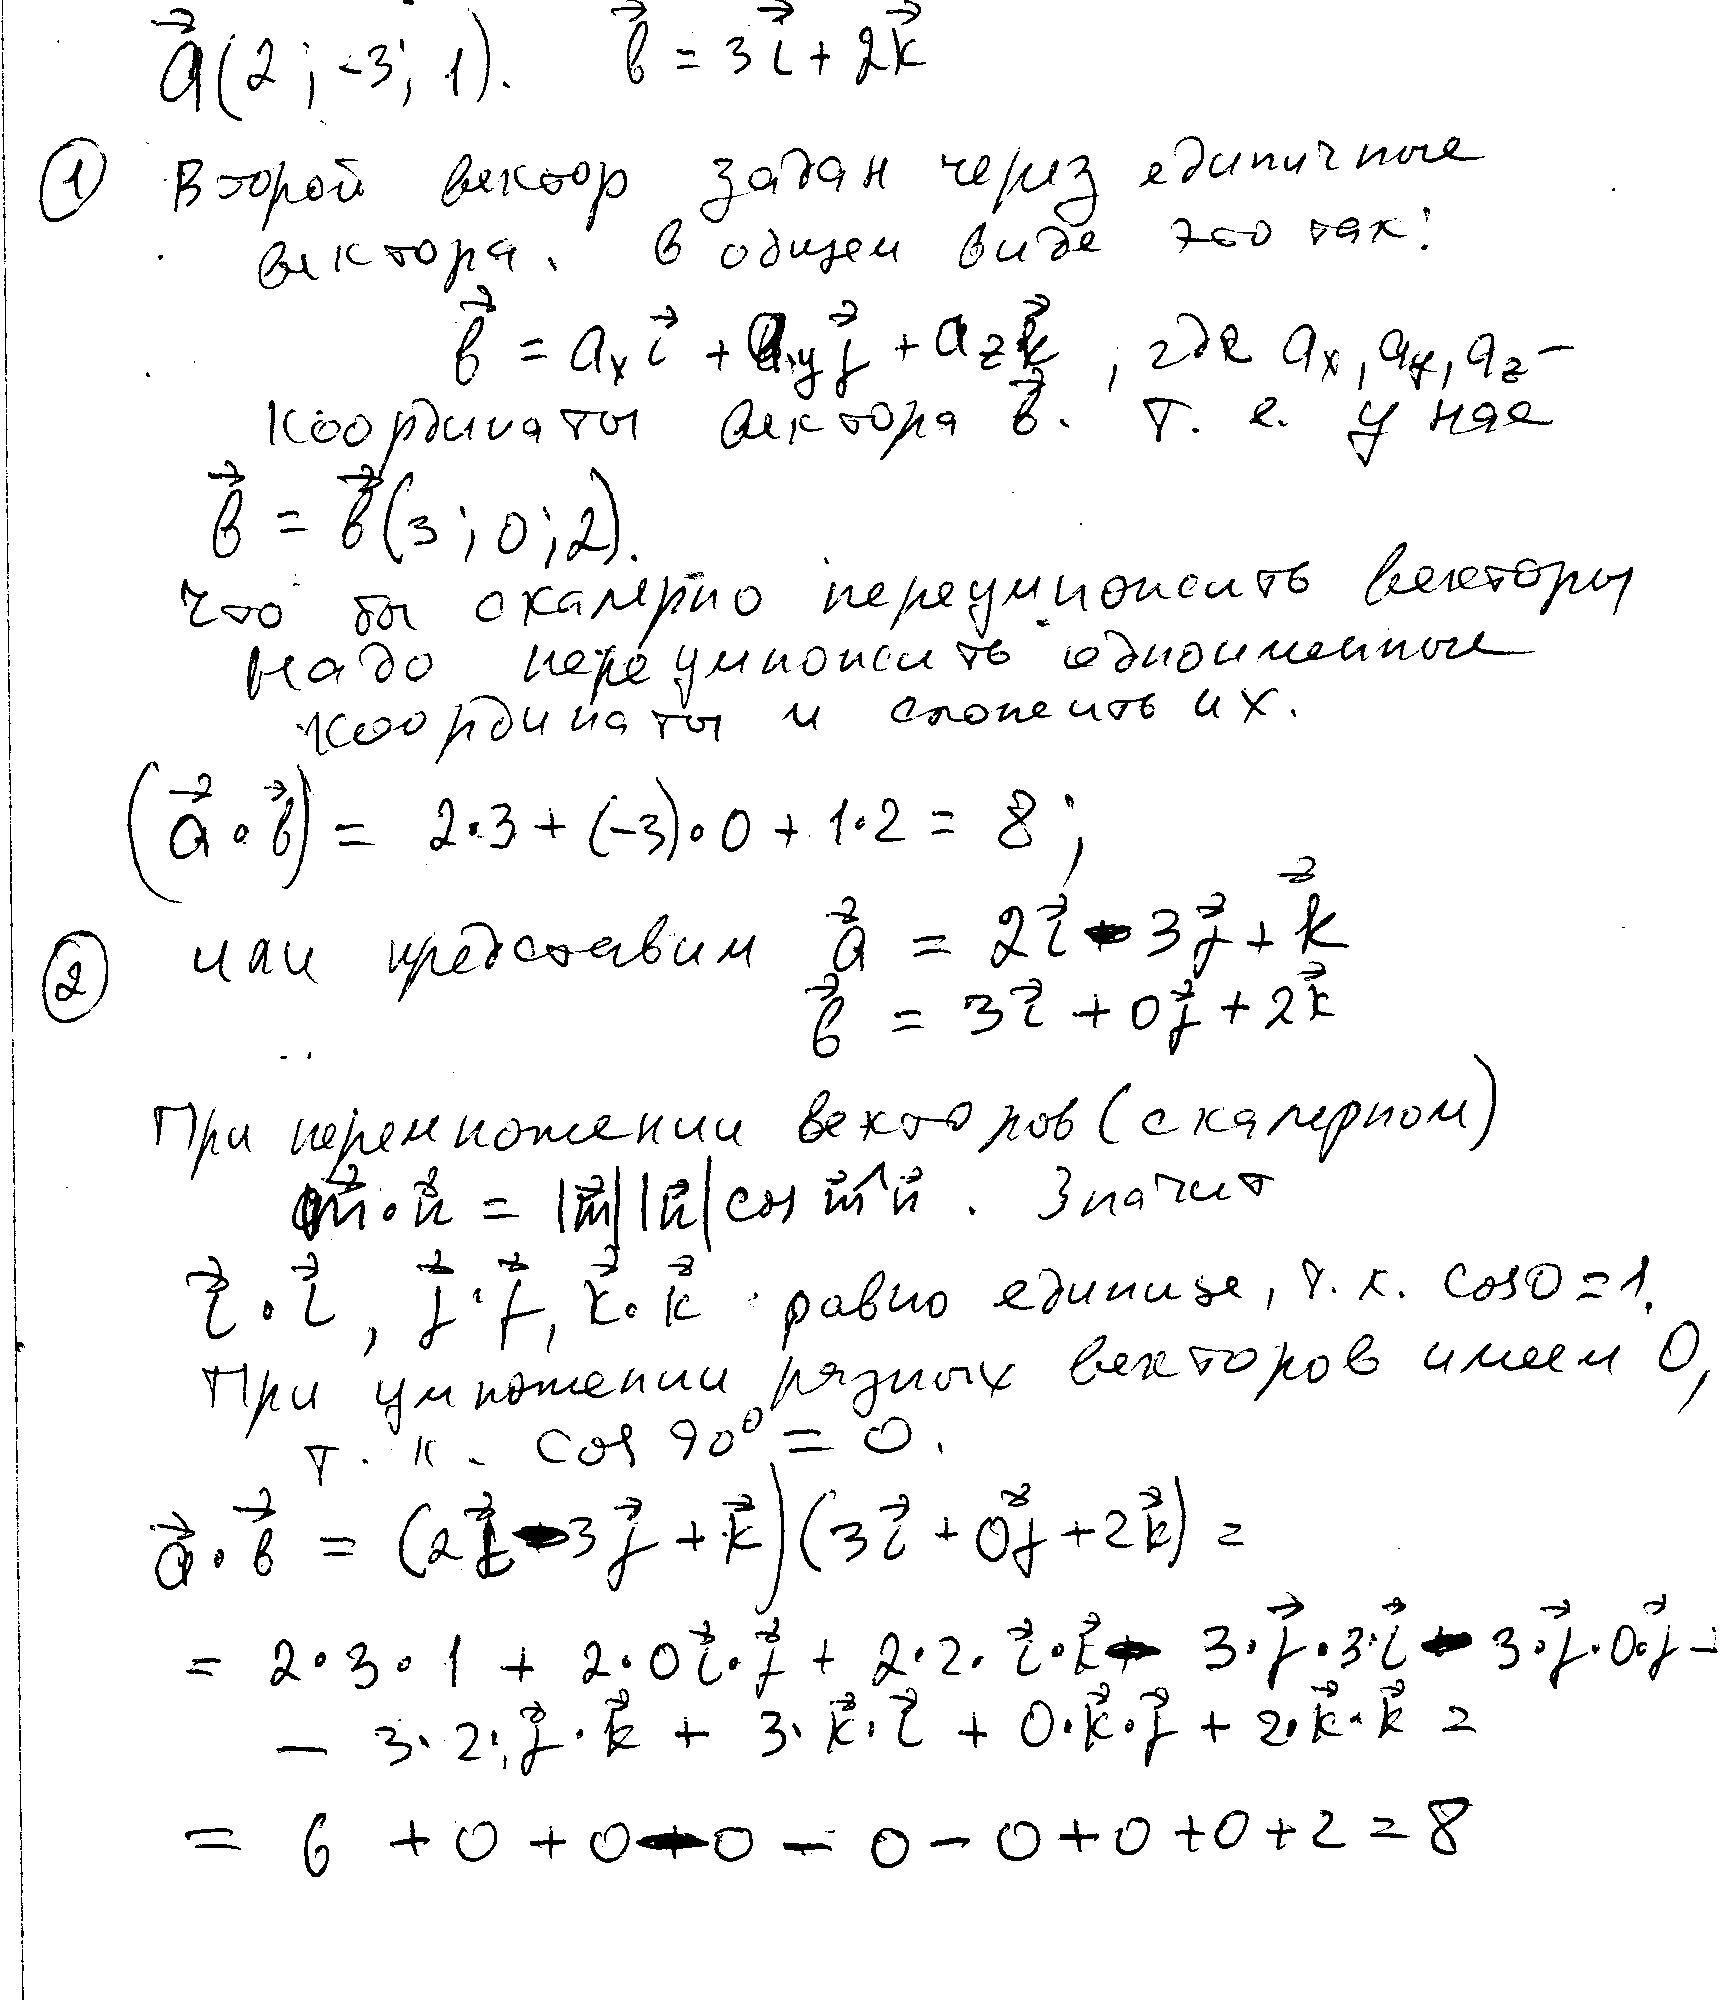 a⃗(2; -3; 1). b⃗ = 3i⃗ + 2k⃗
① Второй вектор задан через единичные
вектора. В общем виде это так:
b⃗ = aₓi⃗ + a_yj⃗ + a_zk⃗, где aₓ, a_y, a_z –
координаты вектора b⃗. Т. е. у нас
b⃗ = b⃗(3; 0; 2).
Что бы скалерно переумножить векторы
надо переумножить одноименные
координаты и сложить их.
(a⃗ · b⃗) = 2·3 + (-3)·0 + 1·2 = 8;
② или представим a⃗ = 2i⃗ - 3j⃗ + k⃗
b⃗ = 3i⃗ + 0j⃗ + 2k⃗
При перемножении векторов (скалерном)
m⃗·n⃗ = |m⃗||n⃗| cos m⃗^n⃗. Значит
i⃗·i⃗, j⃗·j⃗, k⃗·k⃗ равно единице, т. к. cos0=1.
При умножении разных векторов имеем 0,
т. к. cos 90° = 0.
a⃗·b⃗ = (2i⃗ - 3j⃗ + k⃗)(3i⃗ + 0j⃗ + 2k⃗) =
= 2·3·1 + 2·0i⃗·j⃗ + 2·2·i⃗·k⃗ - 3·j⃗·3·i⃗ - 3·j⃗·0·j⃗ -
- 3·2·j⃗·k⃗ + 3·k⃗·i⃗ + 0·k⃗·j⃗ + 2·k⃗·k⃗ =
= 6 + 0 + 0 - 0 - 0 - 0 + 0 + 0 + 2 = 8